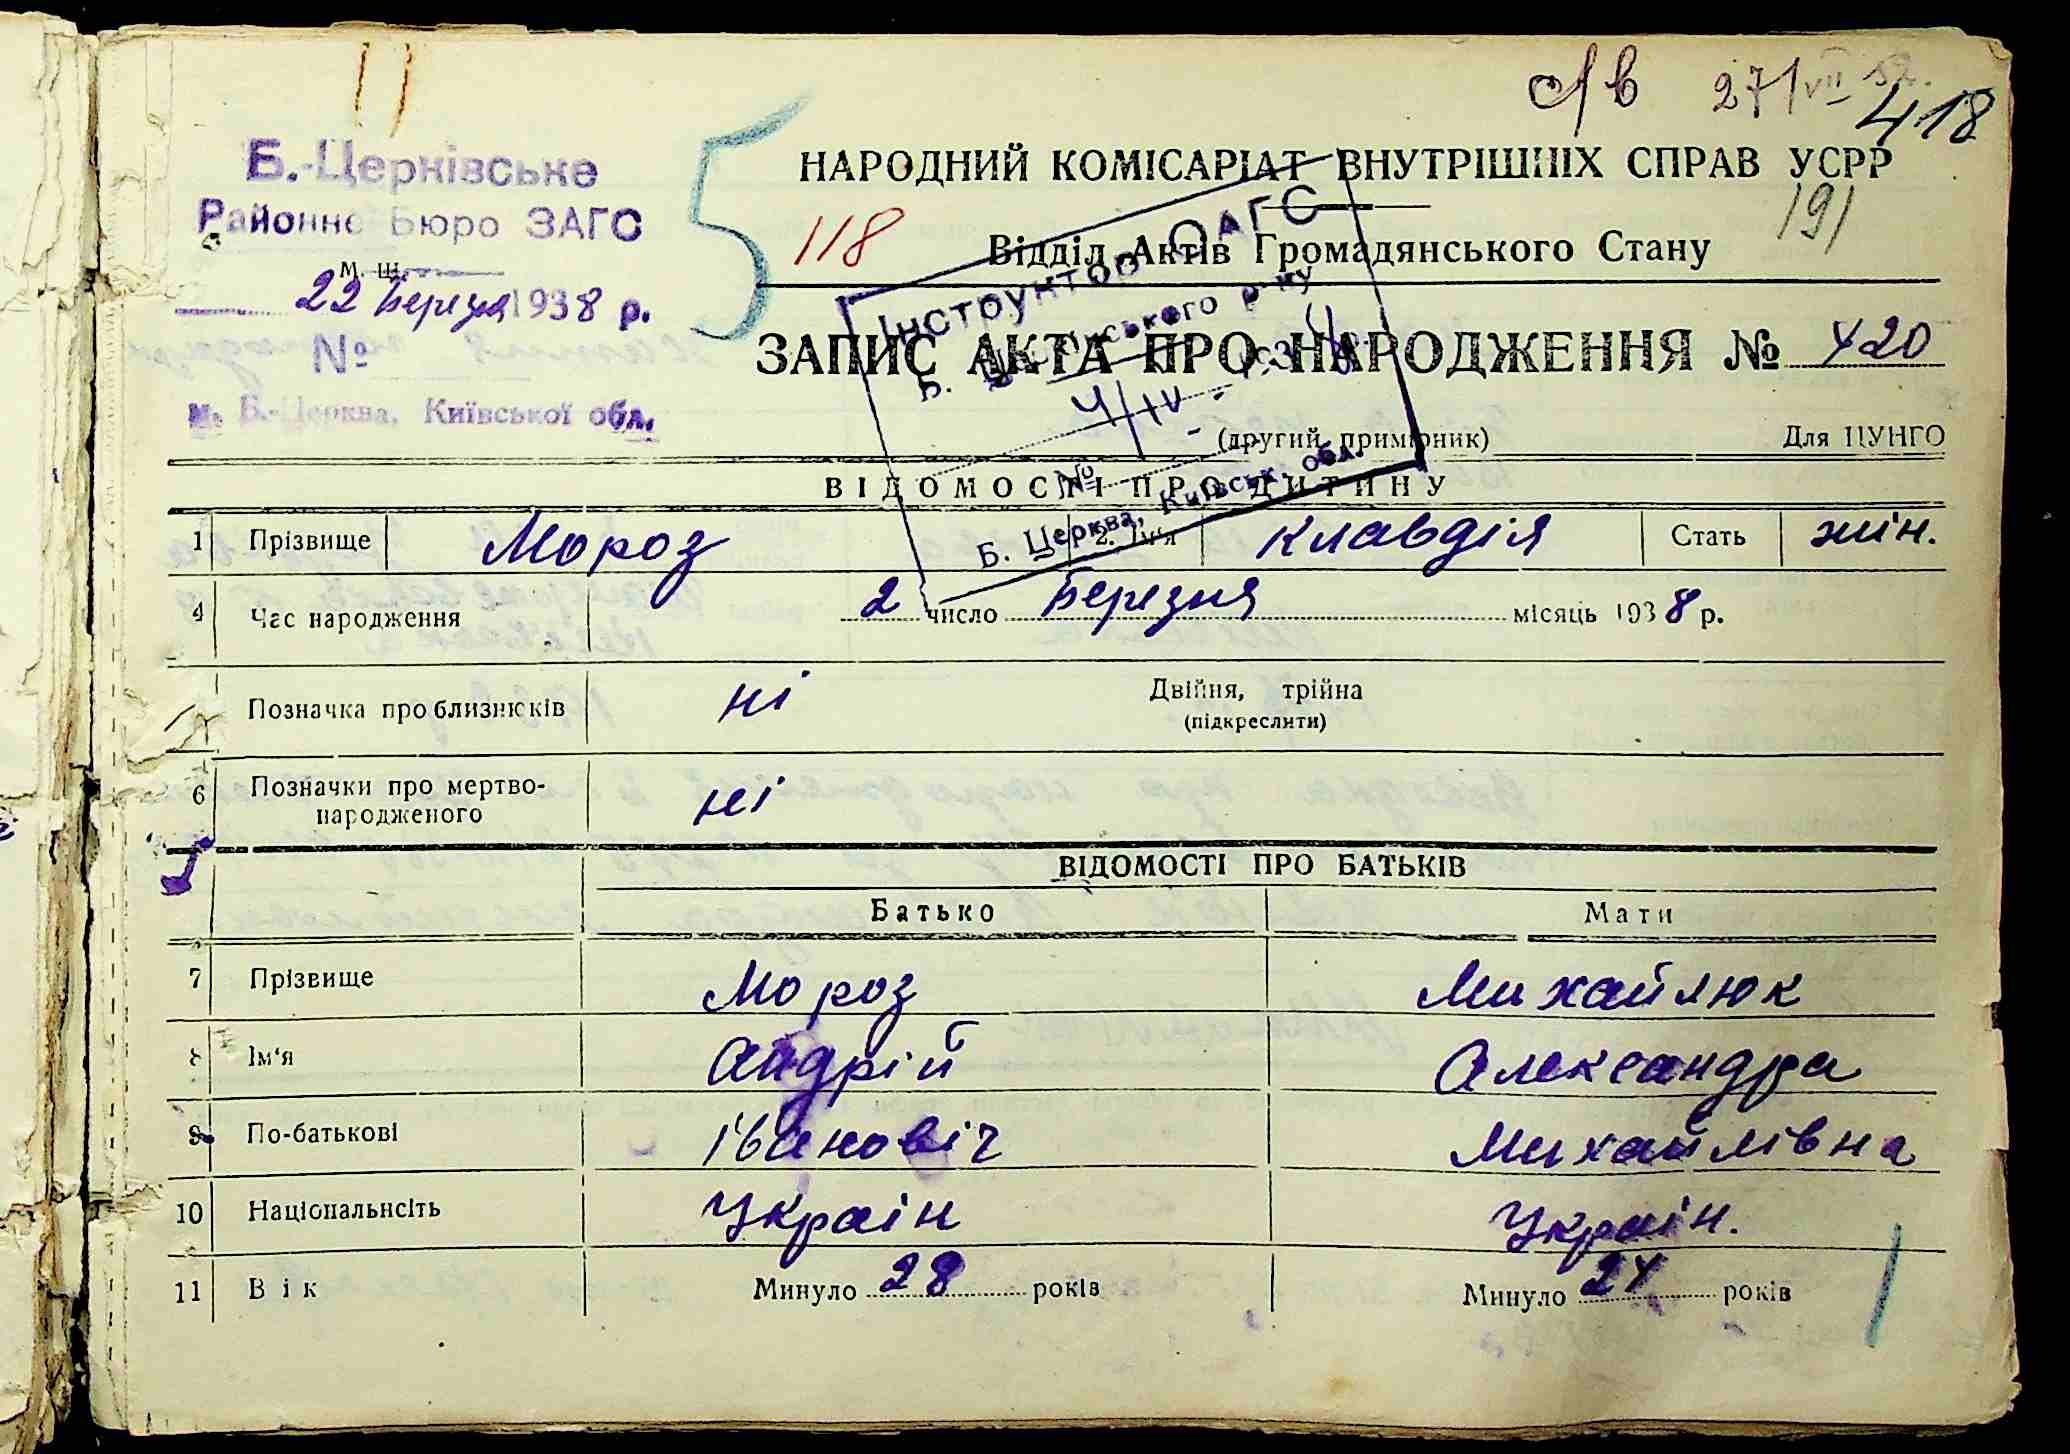 с/в 27/VII 52.
418
Б.-Церківське
Районне Бюро ЗАГС
НАРОДНИЙ КОМІСАРІАТ ВНУТРІШНІХ СПРАВ УСРР
5
118
191
Відділ Актів Громадянського Стану
22 Березня 1938 р.
№
м. Б.-Церква, Київської обл.
Інструктор ЗАГС
Б. Церківського р-ну
4/IV - 1938
№
Б. Церква, Київськ. обл.
ЗАПИС АКТА ПРО НАРОДЖЕННЯ № 420
(другий примірник) Для ЦУНГО
ВІДОМОСТІ ПРО ДИТИНУ
1 Прізвище Мороз 2. Ім'я Клавдія Стать жін.
4 Час народження 2 число Березня місяць 1938 р.
Позначка про близнюків ні Двійня, трійна
(підкреслити)
6 Позначки про мертво-
народженого ні
ВІДОМОСТІ ПРО БАТЬКІВ
Батько Мати
7 Прізвище Мороз Михайлюк
8 Ім'я Андрій Александра
9 По-батькові Івановіч Михайлівна
10 Національність Украін Украін.
11 Вік Минуло 28 років Минуло 24 років